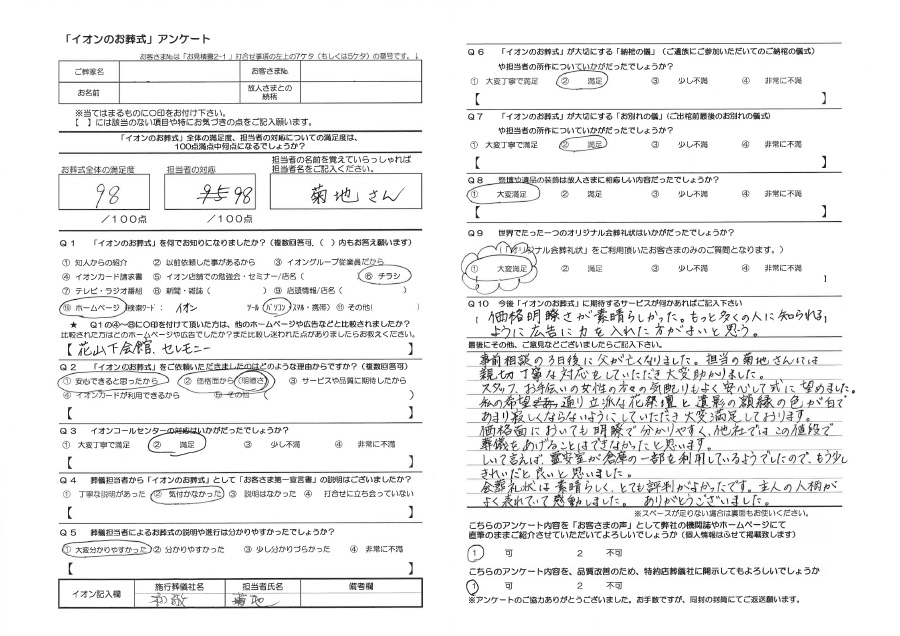 「イオンのお葬式」アンケート
お客さまNo.は「お見積書2-1」打合せ事項の左上の7ケタ(もしくは5ケタ)の番号です。↓
ご葬家名 お客さまNo.
お名前 故人さまとの続柄
※当てはまるものに○印をお付け下さい。
【 】には該当のない項目や特にお気づきの点をご記入願います。
「イオンのお葬式」全体の満足度、担当者の対応についての満足度は、
100点満点中何点になるでしょうか?
お葬式全体の満足度 担当者の対応 担当者の名前を覚えていらっしゃれば
担当者名をご記入ください。
98 95 98 菊地さん
/100点 /100点
Q1 「イオンのお葬式」を何でお知りになりましたか?(複数回答可、( )内もお答え願います)
① 知人からの紹介 ② 以前依頼した事があるから ③ イオングループ従業員だから
④ イオンカード請求書 ⑤ イオン店舗での勉強会・セミナー/店名( ) ⑥ チラシ
⑦ テレビ・ラジオ番組 ⑧ 新聞・雑誌( ) ⑨ 店頭情報/店名( )
⑩ ホームページ(検索ワード: イオン ツール パソコン スマホ・携帯) ⑪ その他( )
★ Q1の④~⑩に○印を付けて頂いた方は、他のホームページや広告などと比較されましたか?
比較された方はどのホームページや広告でしたか?また比較し迷われた点がありましたらお教えください。
【 花山下会館、セレモニー 】
Q2 「イオンのお葬式」をご依頼いただきましたのはどのような理由からですか?(複数回答可)
① 安心できると思ったから ② 価格面から(明瞭さ) ③ サービスや品質に期待したから
④ イオンカードが利用できるから ⑤ その他( )
【 】
Q3 イオンコールセンターの対応はいかがだったでしょうか?
① 大変丁寧で満足 ② 満足 ③ 少し不満 ④ 非常に不満
【 】
Q4 葬儀担当者から「イオンのお葬式」として「お客さま第一宣言書」の説明はございましたか?
① 丁寧な説明があった ② 気付かなかった ③ 説明はなかった ④ 打合せに立ち会っていない
【 】
Q5 葬儀担当者によるお葬式の説明や進行は分かりやすかったでしょうか?
① 大変分かりやすかった ② 分かりやすかった ③ 少し分かりづらかった ④ 非常に不満
【 】
イオン記入欄 施行葬儀社名 担当者氏名 備考欄
和敬 菊地
Q6 「イオンのお葬式」が大切にする「納棺の儀」(ご遺族にご参加いただいてのご納棺の儀式)
や担当者の所作についていかがだったでしょうか?
① 大変丁寧で満足 ② 満足 ③ 少し不満 ④ 非常に不満
【 】
Q7 「イオンのお葬式」が大切にする「お別れの儀」(ご出棺前最後のお別れの儀式)
や担当者の所作についていかがだったでしょうか?
① 大変丁寧で満足 ② 満足 ③ 少し不満 ④ 非常に不満
【 】
Q8 祭壇や遺品の装飾は故人さまに相応しい内容だったでしょうか?
① 大変満足 ② 満足 ③ 少し不満 ④ 非常に不満
【 】
Q9 世界でたった一つのオリジナル会葬礼状はいかがだったでしょうか?
(「オリジナル会葬礼状」をご利用頂いたお客さまのみのご質問となります。)
① 大変満足 ② 満足 ③ 少し不満 ④ 非常に不満
Q10 今後「イオンのお葬式」に期待するサービスが何かあればご記入下さい
価格明瞭さが素晴らしかった。もっと多くの人に知られる
ように広告に力を入れた方がよいと思う。
最後にその他、ご意見などございましたらご記入下さい。
事前相談の3日後に父が亡くなりました。担当の菊地さんには
親切丁寧な対応をしていただき大変助かりました。
スタッフ、お手伝いの女性の方々の気配りもよく安心して式に望めました。
私の希望通り立派な花祭壇と遺影の額縁の色が白で
あまり寂しくならないようにしていただき大変満足しております。
価格面においても明瞭で分かりやすく、他社ではこの値段で
葬儀をあげることはできなかったと思います。
しいて言えば、霊安室が倉庫の一部を利用しているようでしたので、もう少し
きれいだと良いと思いました。
会葬礼状は素晴らしく、とても評判がよかったです。主人の人柄が
よく表れていて感動しました。ありがとうございました。
※スペースが足りない場合は裏面もお使いください。
こちらのアンケート内容を「お客さまの声」として弊社の機関誌やホームページにて
直筆のままご紹介させていただいてよろしいでしょうか(個人情報はふせて掲載致します)
1 可 2 不可
こちらのアンケート内容を、品質改善のため、特約店葬儀社に開示してもよろしいでしょうか
1 可 2 不可
※アンケートのご協力ありがとうございました。お手数ですが、同封の封筒にてご返送願います。